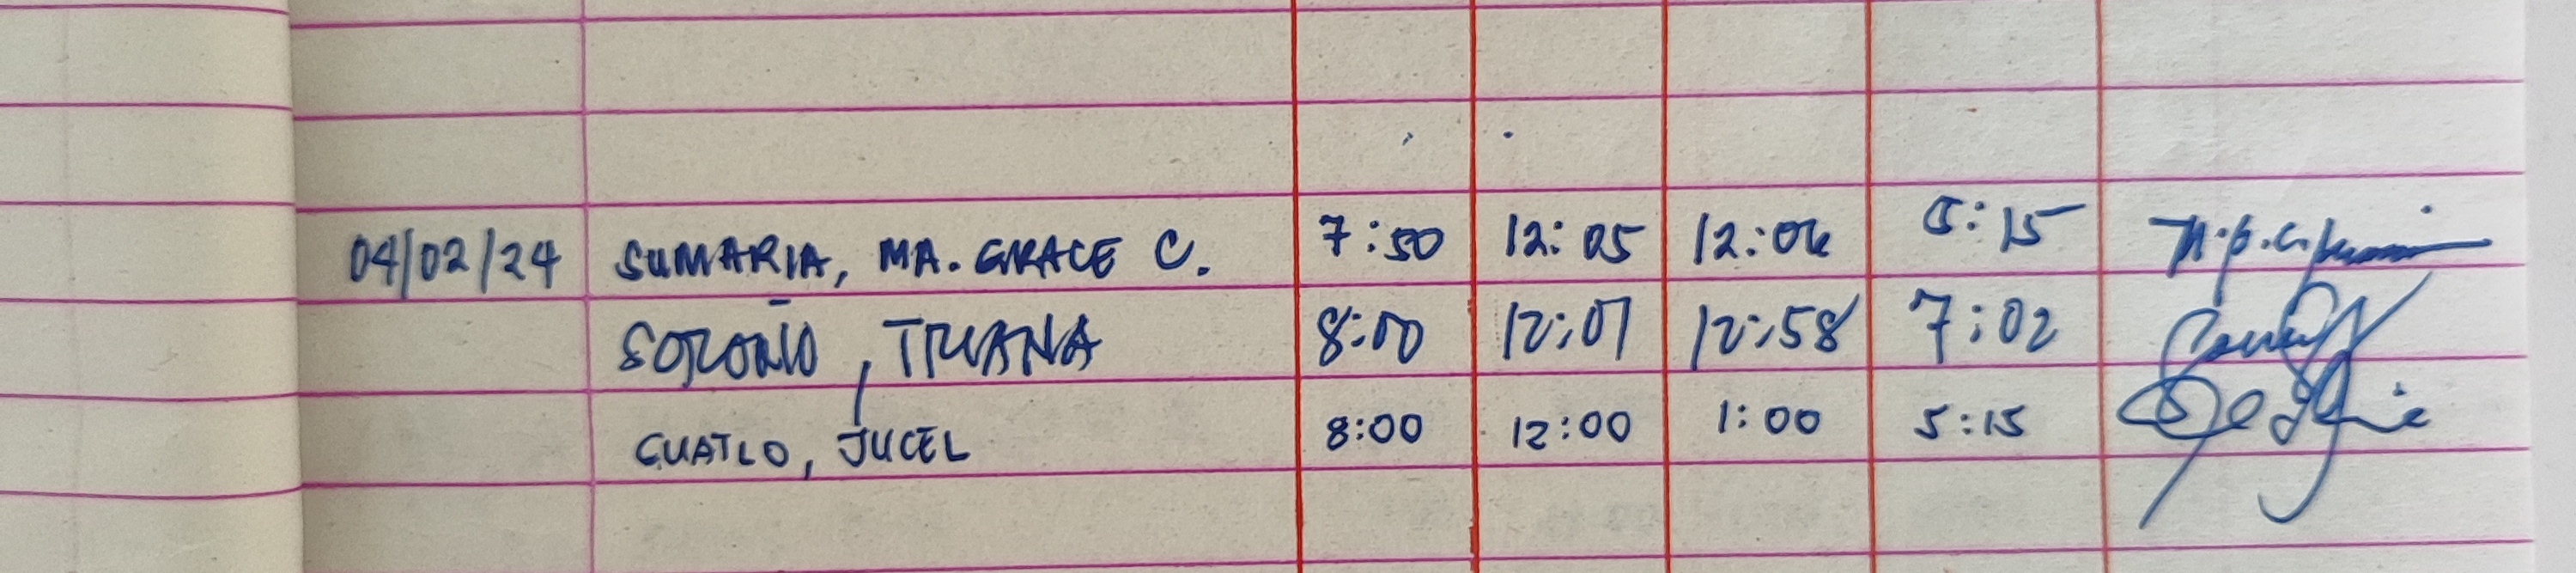 04/02/24 SUMARIA, MA. GRACE C. 7:50 12:05 12:06 5:15
SOROÑO, TRIANA 8:00 12:01 12:58 7:02
CUATLO, JUCEL 8:00 12:00 1:00 5:15